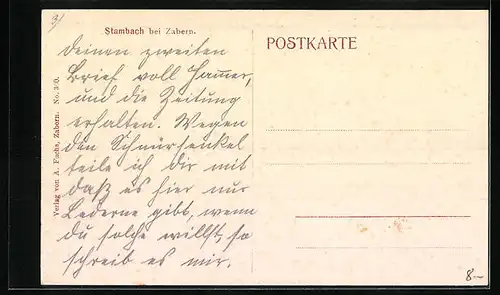 3)
Stambach bei Zabern.
POSTKARTE
deinen zweiten
Brief voll Jammer,
und die Zeitung
erhalten. Wegen
den Schnürsenkel
teile ich dir mit
daß es hier nur
Lederne gibt, wenn
du solche willst, so
schreib es mir.
Verlag von A. Fuchs, Zabern. No. 3/0.
8–